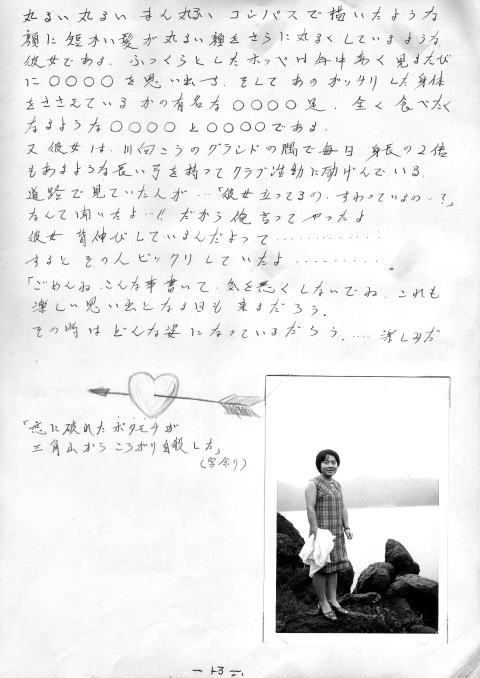 丸るい丸るい まん丸るい コンパスで描いたような
顔に短かい髪が丸るい顔をさらに丸るくしているような
彼女である。ふっくらとしたホッペは年中あく見るたび
に〇〇〇〇を思い出す、そしてあのガッチリした身体
をささえているかの有名な〇〇〇〇足、全く食べたく
なるような〇〇〇〇と〇〇〇〇である。
又彼女は、川向こうのグランドの隅で毎日 身長の2倍
もあるような長い弓を持ってクラブ活動に励げんでいる。
道路で見ていた人が…「彼女立ってるの、すわっているの…?」
なんて聞いたよ…!! だから俺言ってやったよ
彼女 背伸びしているんだよって…………
するとその人ビックリしていたよ…………。
「ごめんね、こんな事書いて、気を悪くしないでね、これも
楽しい思い出となる日も来るだろう。
その時はどんな姿になっているだろう。…… 楽しみだ
「恋に破れたボタモチが
三角山からころがり自殺した」
(字余り)
— 13 —